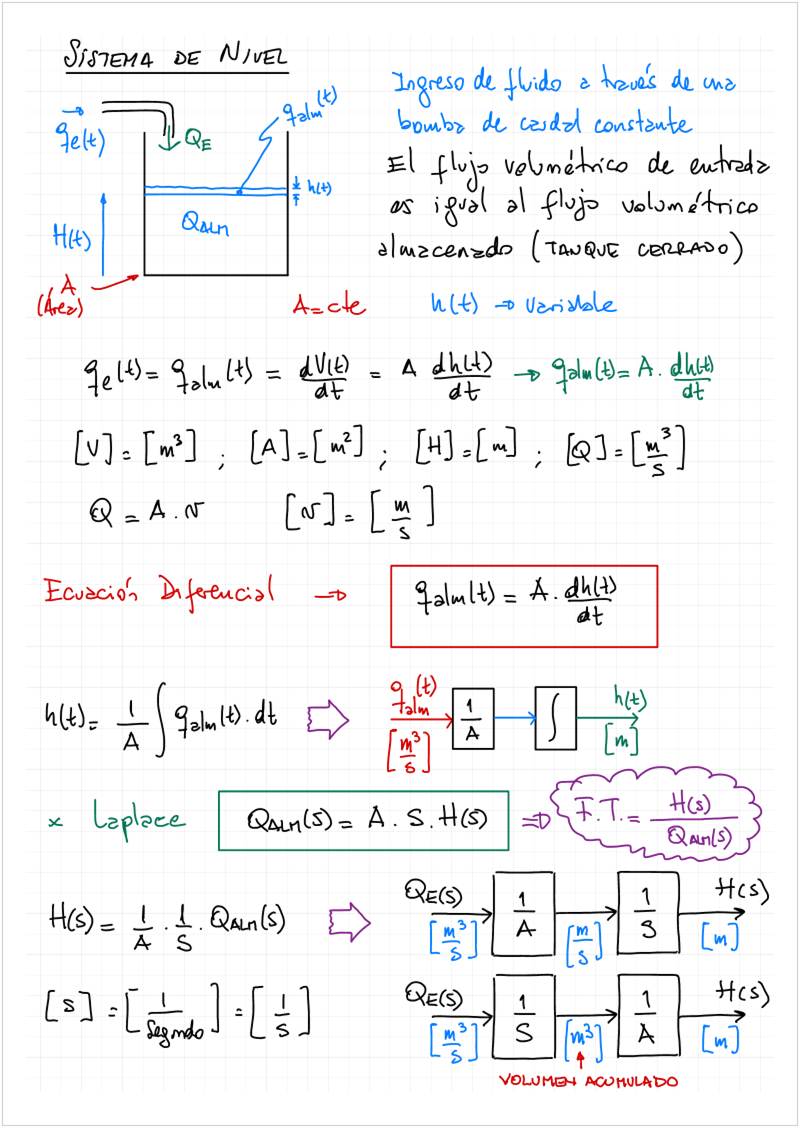 SISTEMA DE NIVEL
qe(t)
QE
qalm(t)
h(t)
H(t)
QALM
A
(Área)
Ingreso de fluido a través de una
bomba de caudal constante
El flujo volumétrico de entrada
es igual al flujo volumétrico
almacenado (TANQUE CERRADO)
A = cte
h(t) → variable
qe(t) = qalm(t) = dV(t)/dt = A dh(t)/dt → qalm(t) = A . dh(t)/dt
[V] = [m³] ; [A] = [m²] ; [H] = [m] ; [Q] = [m³/s]
Q = A . v [v] = [m/s]
Ecuación Diferencial → qalm(t) = A . dh(t)/dt
h(t) = 1/A ∫ qalm(t) . dt ⇨ qalm(t) [m³/s] 1/A ∫ h(t) [m]
x Laplace QALM(S) = A . S . H(S) ⇒ F.T. = H(S)/QALM(S)
H(S) = 1/A . 1/S . QALM(S) ⇨ QE(S) [m³/s] 1/A [m/s] 1/S H(S) [m]
[S] = [1/Segundo] = [1/s] QE(S) [m³/s] 1/S [m³] 1/A H(S) [m]
VOLUMEN ACUMULADO